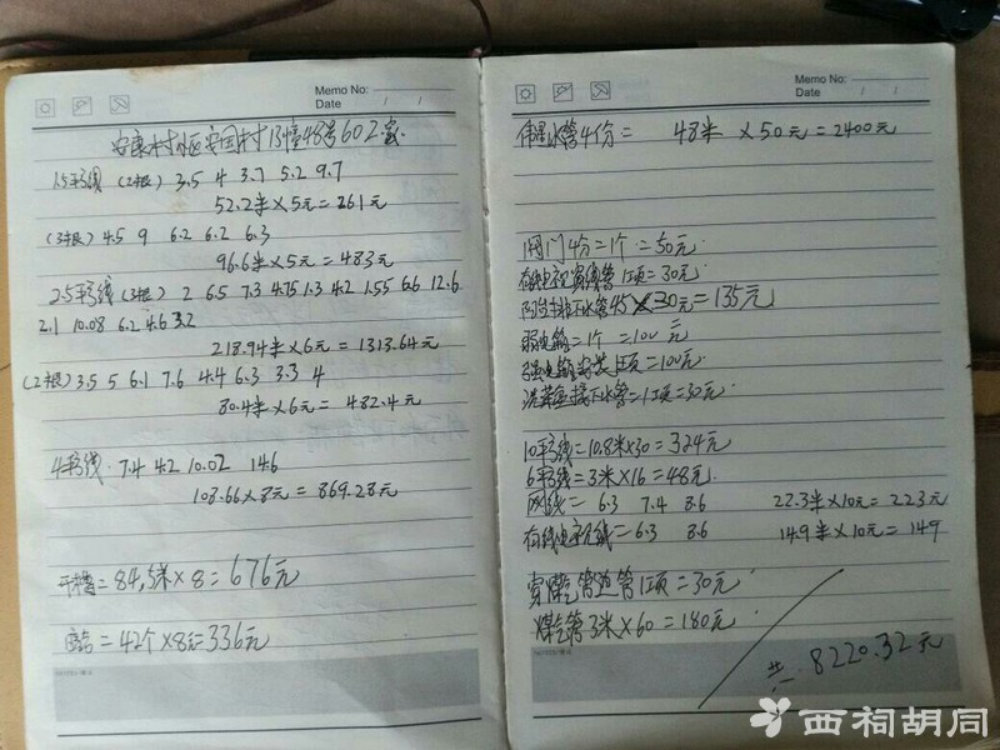 Memo No:
Date / /
安康村小区安国村13幢48号602室
1.5平方线 (2根) 3.5 4 3.7 5.2 9.7
52.2米×5元=261元
(3根) 4.5 9 6.2 6.2 6.3
96.6米×5元=483元
2.5平方线 (3根) 2 6.5 7.3 4.75 1.3 4.2 1.55 6.6 12.6
2.1 10.08 6.2 4.6 3.2
218.94米×6元=1313.64元
(2根) 3.5 5 6.1 7.6 4.4 6.3 3.3 4
80.4米×6元=482.4元
4平方线 7.4 4.2 10.02 14.6
108.66×8元=869.28元
开槽=84.5米×8=676元
=42个×8元=336元
Memo No:
Date / /
伟星水管4份= 48米 ×50元=2400元
阀门4份=1个=50元
有线电视 线管1项=30元
下水管4.5×30元=135元
弱电箱=1个=100元
强电箱安装1项=100元
洗菜盆接下水管=1项=30元
10平方线=10.8米×30=324元
6平方线=3米×16=48元
网线= 6.3 7.4 8.6 22.3米×10元=223元
有线电视线=6.3 8.6 14.9米×10元=149
穿煤气管边管1项=30元
煤气管3米×60=180元
共:8220.32元
西祠胡同